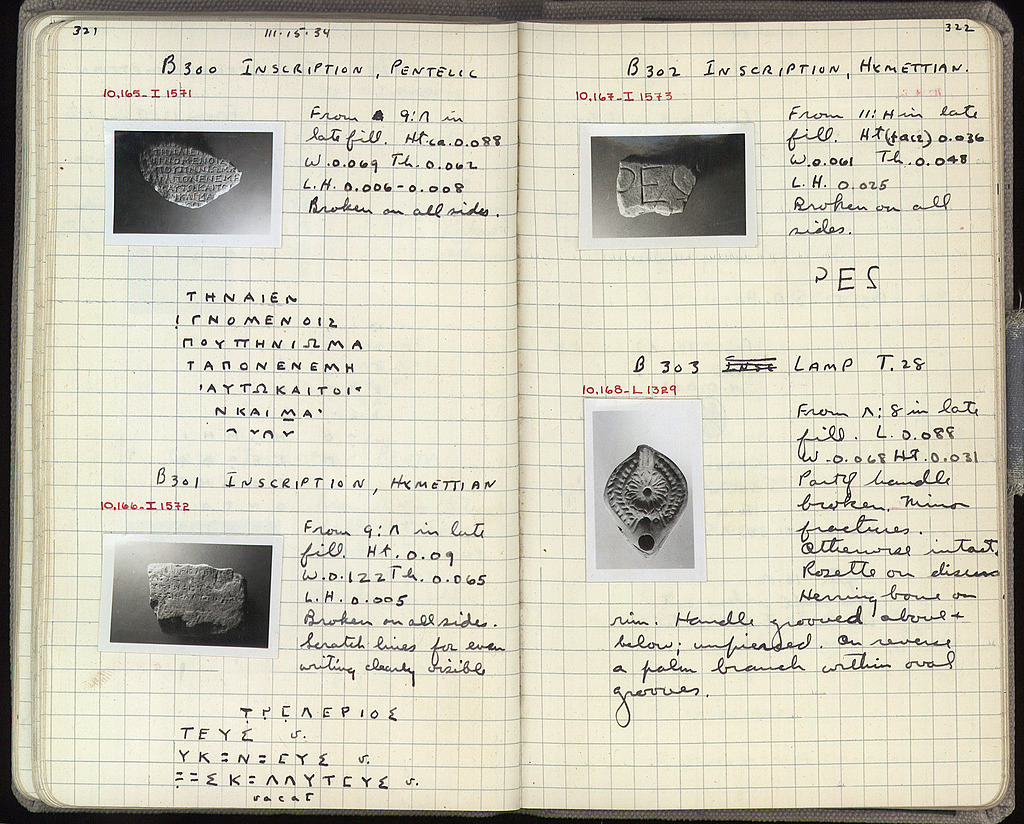 321
111·15·34
B 300 INSCRIPTION, PENTELIC
10,165-I 1571
From 9:Λ in
late fill. Ht. ca. 0.088
W. 0.069 Th. 0.062
L.H. 0.006-0.008
Broken on all sides.
ΤΗΝΑΙΕΝ
ΙΓΝΟΜΕΝΟΙΣ
ΠΟΥΠΗΝΙΩΜΑ
ΤΑΠΟΝΕΝΕΜΗ
ΑΥΤΩΚΑΙΤΟΙ
ΝΚΑΙΜΑ
B 301 INSCRIPTION, HYMETTIAN
10,166-I 1572
From 9:Λ in late
fill. Ht. 0.09
W. 0.122 Th. 0.065
L.H. 0.005
Broken on all sides.
Scratch lines for even
writing clearly visible
ΛΕΡΙΟΣ
ΤΕΥΣ v.
ΥΚΞΝΞΕΥΣ v.
ΣΚΞΛΛΥΤΕΥΣ v.
vacat
322
B 302 INSCRIPTION, HYMETTIAN.
10,167-I 1573
From 111:H in late
fill. Ht (face) 0.036
W. 0.061 Th. 0.048
L.H. 0.025
Broken on all
sides.
ΡΕΣ
B 303 LAMP T. 28
10,168-L 1329
From Λ:8 in late
fill. L. 0.088
W. 0.068 Ht. 0.031
Part of handle
broken. Minor
fractures.
Otherwise intact.
Rosette on discus
Herring bone on
rim. Handle grooved above +
below; unpierced. On reverse
a palm branch within oval
grooves.